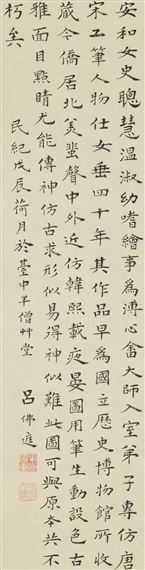 安和女史聰慧溫淑幼嗜繪事為溥心畬大師入室弟子專仿唐
宋工筆人物仕女垂四十年其作品早為國立歷史博物館所收
藏今僑居北美蜚聲中外近仿韓熙載夜宴圖用筆生動設色古
雅面目點睛尤能傳神仿古求形似易得神似難此圖可與原本共不
朽矣
民紀戊辰荷月於臺中半僧艸堂 呂佛庭